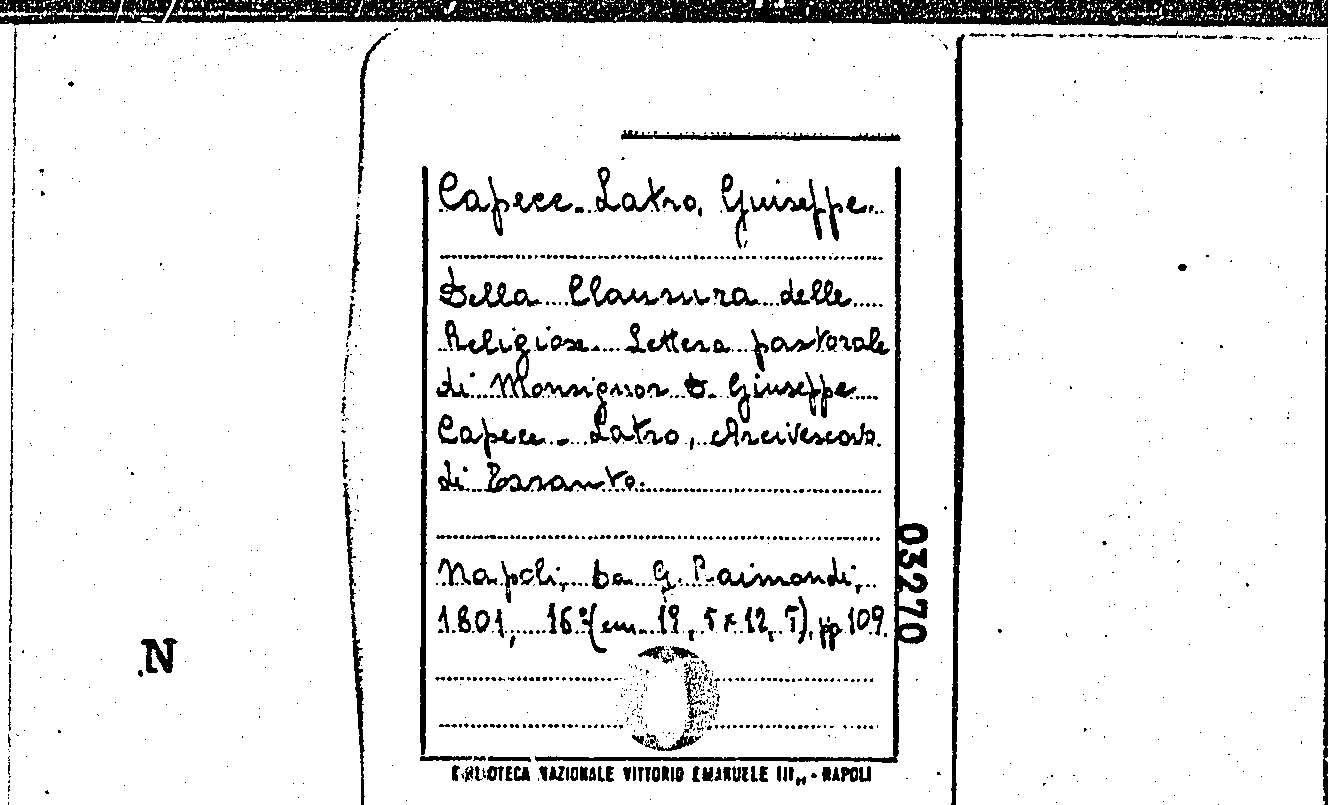 Capece-Latro, Giuseppe.
Della Clausura delle
Religiose. Lettera pastorale
di Monsignor D. Giuseppe
Capece-Latro, Arcivescovo
di Taranto.
Napoli, da G. Raimondi,
1801, 16º (cm. 19,5 x 12,5), pp 109.
03270
N
BIBLIOTECA NAZIONALE VITTORIO EMANUELE III - NAPOLI